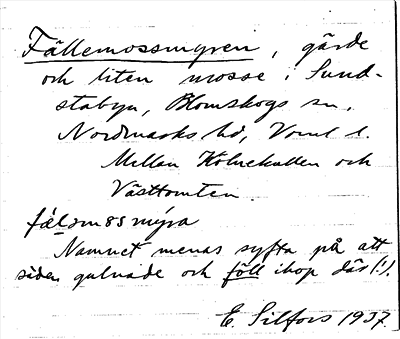 Fällemossmyren, gärde
och liten mosse i Sund-
stabyn, Blomskogs sn,
Nordmarks hd, Vrml. l.
Mellan Kolnekullen och
Västtomten.
fälsmossmýra
Namnet menas syfta på att
säden gulnade och föll ihop där (!).
E. Silfors 1937